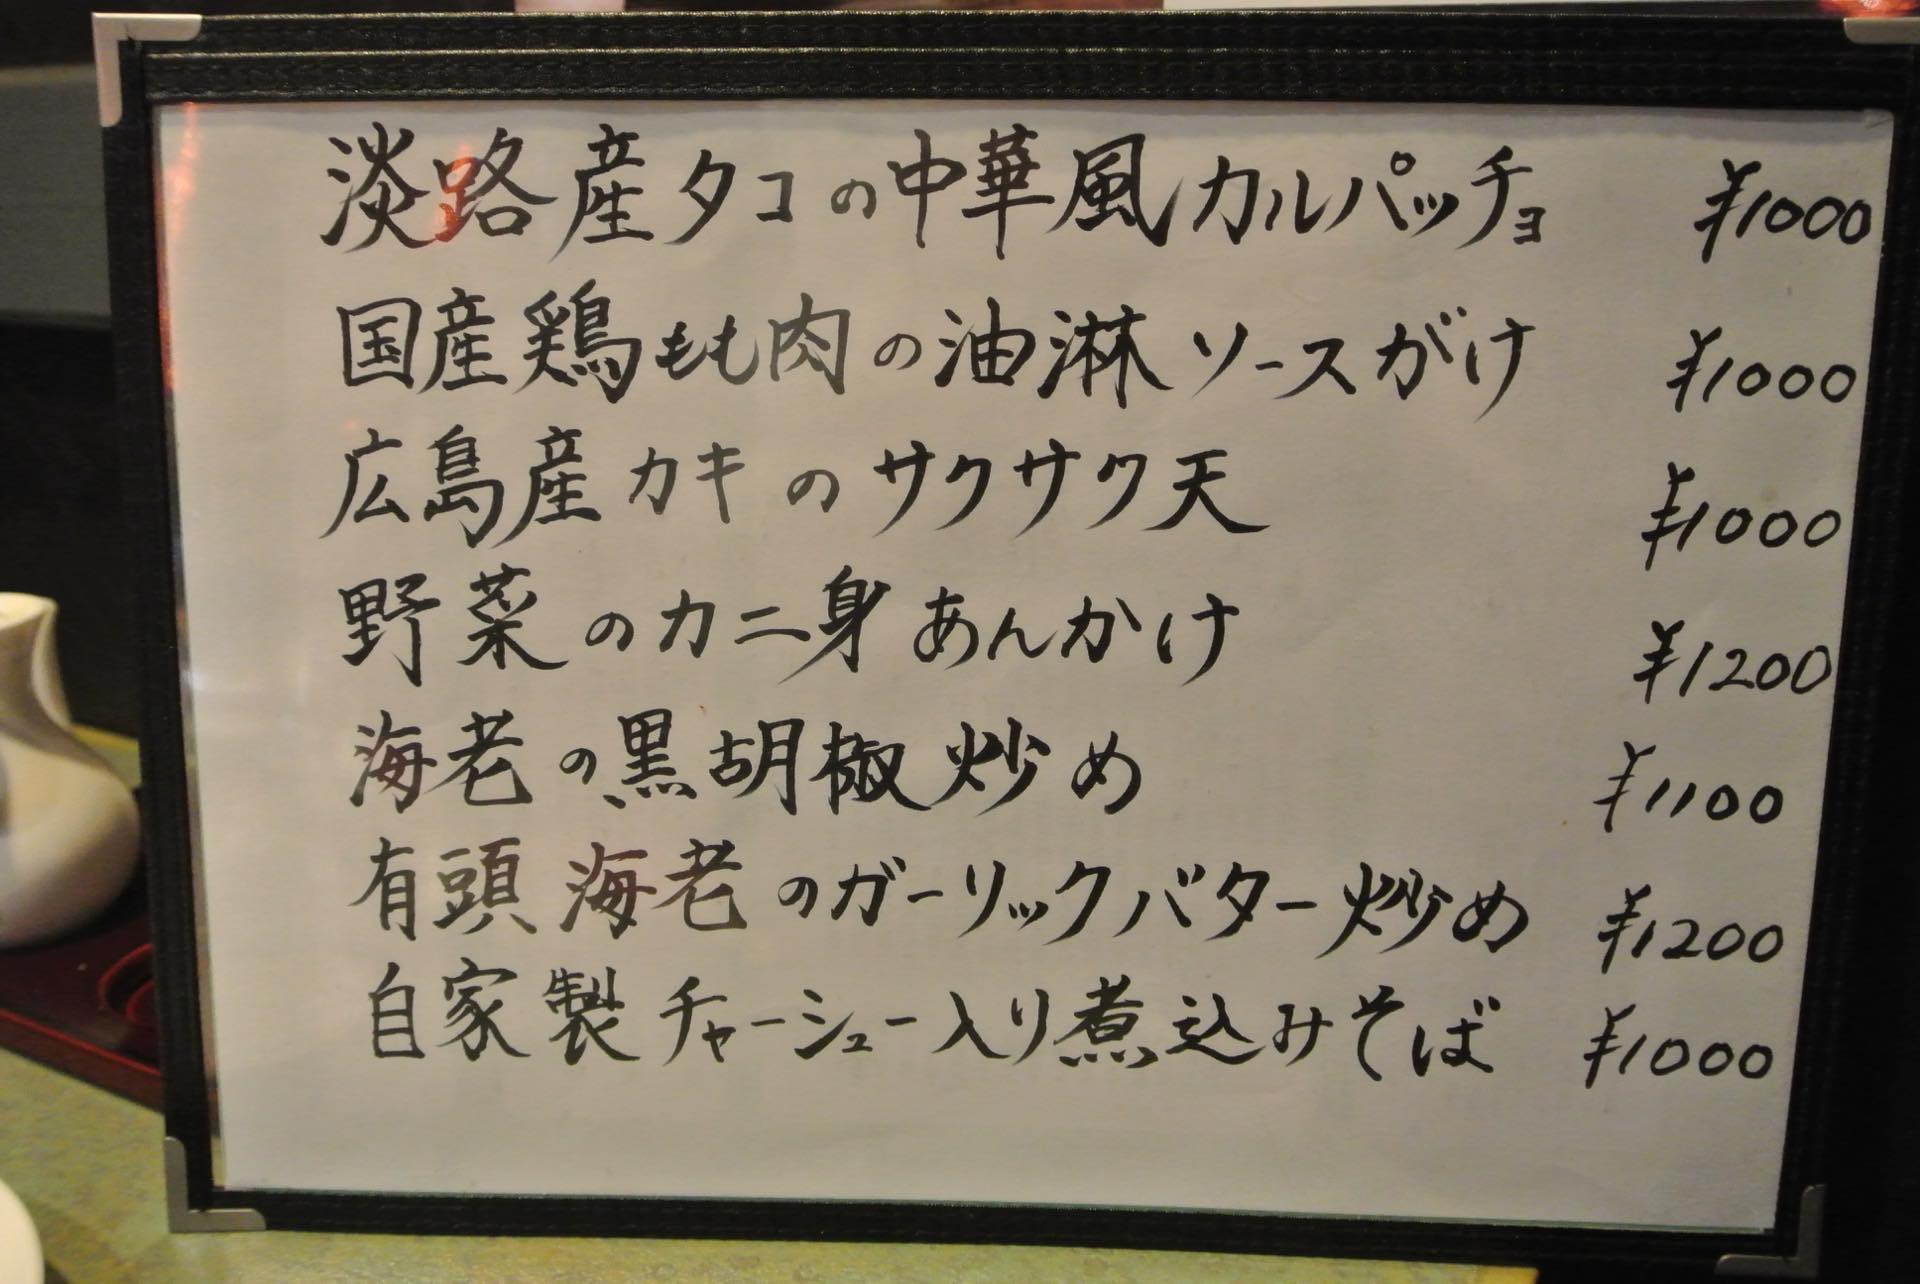 淡路産タコの中華風カルパッチョ ¥1000
国産鶏もも肉の油淋ソースがけ ¥1000
広島産カキのサクサク天 ¥1000
野菜のカニ身あんかけ ¥1200
海老の黒胡椒炒め ¥1100
有頭海老のガーリックバター炒め ¥1200
自家製チャーシュー入り煮込みそば ¥1000